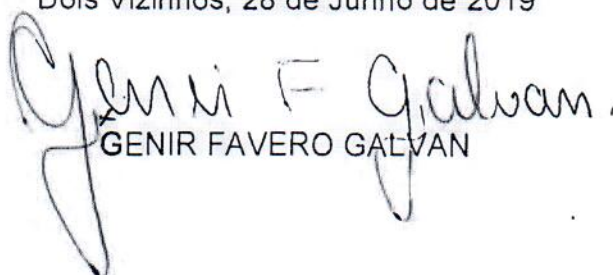 Dois Vizinhos, 28 de Junho de 2019
Genir F Galvan.
GENIR FAVERO GALVAN